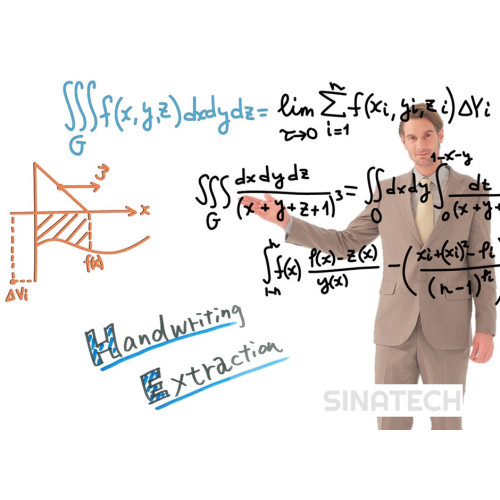 ∭_G f(x,y,z)dxdydz = lim_{τ→0} Σ_{i=1}^{n} f(xi,yi,zi)ΔVi
∭_G dxdydz/(x+y+z+1)³ = ∬_D dxdy ∫_0^{1-x-y} dt/(x+y+
ʒ
x
f(x)
ΔVi
f(x) (ρ(x)-z(x))/y(x) - ( (xi+(xi)²-Pi)/(n-1)
Handwriting
Extraction
SINATECH